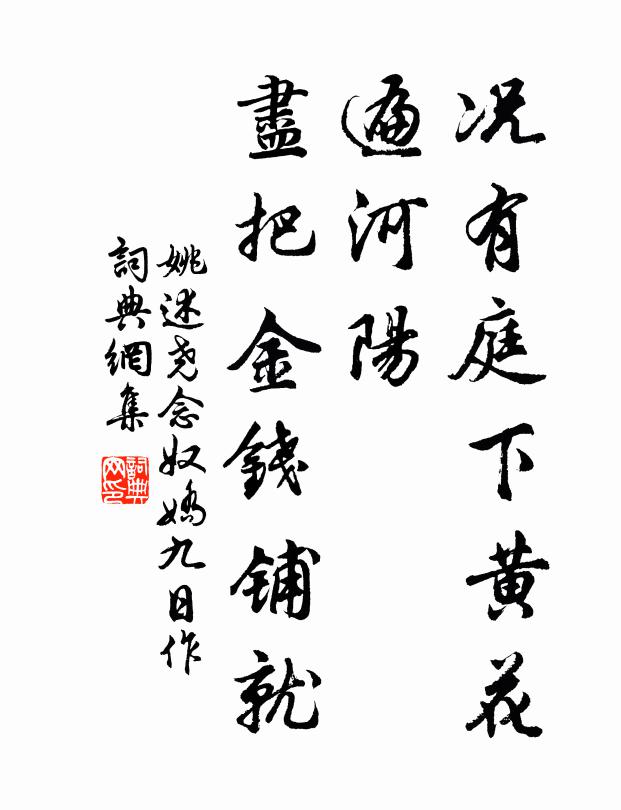 况有庭下黄花
遍河陽
盡把金錢铺就
姚述尧念奴嬌九日作
詞典網集
詞典网印